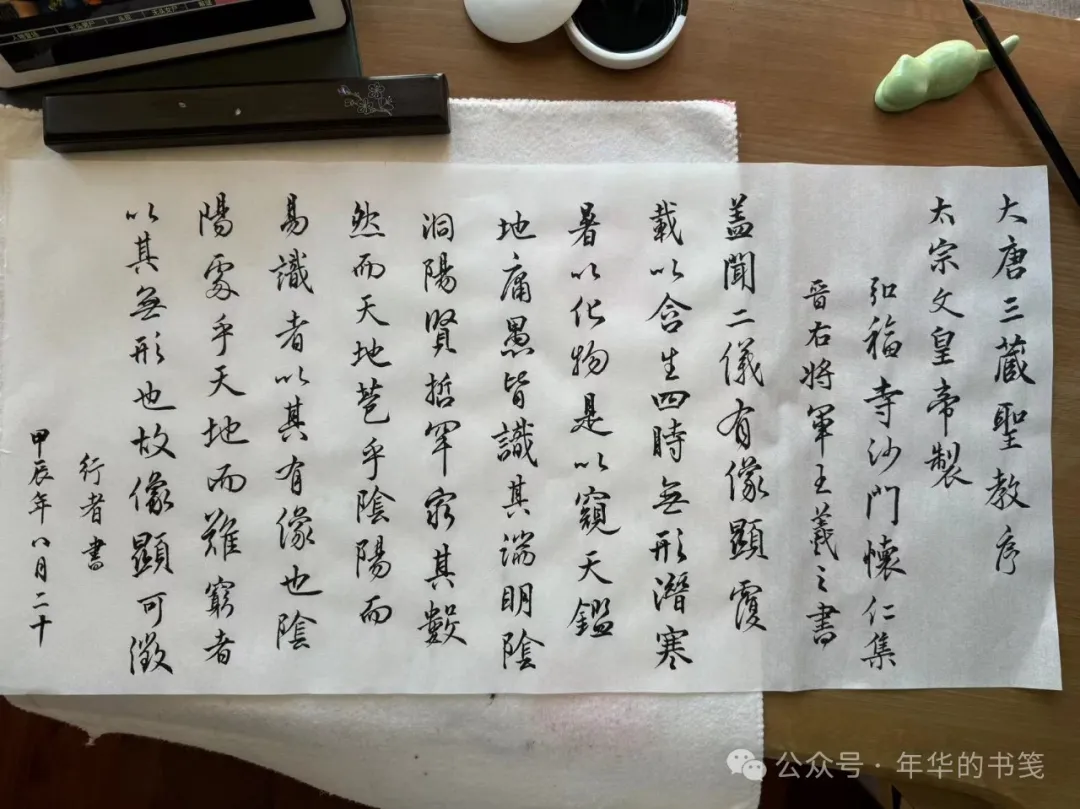 大唐三藏聖教序
太宗文皇帝製
弘福寺沙門懷仁集
晉右將軍王羲之書
盖聞二儀有像顯覆
載以含生四時無形潛寒
暑以化物是以窺天鑑
地庸愚皆識其端明陰
洞陽賢哲罕窮其數
然而天地苞乎陰陽而
易識者以其有像也陰
陽處乎天地而難窮者
以其無形也故像顯可徵
行者書
甲辰年八月二十
公众号·年华的书笺